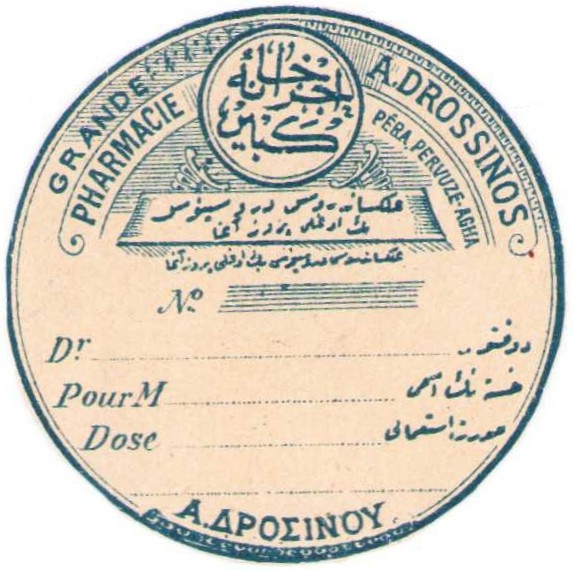 GRANDE PHARMACIE
A. DROSSINOS
PÉRA, PERVUZE-AGHA
اجزاخانهٔ
كبير
No.
Dr. دوقتور
Pour M خسته نك اسمى
Dose صورت استعمالى
Α. ΔΡΟΣΙΝΟΥ